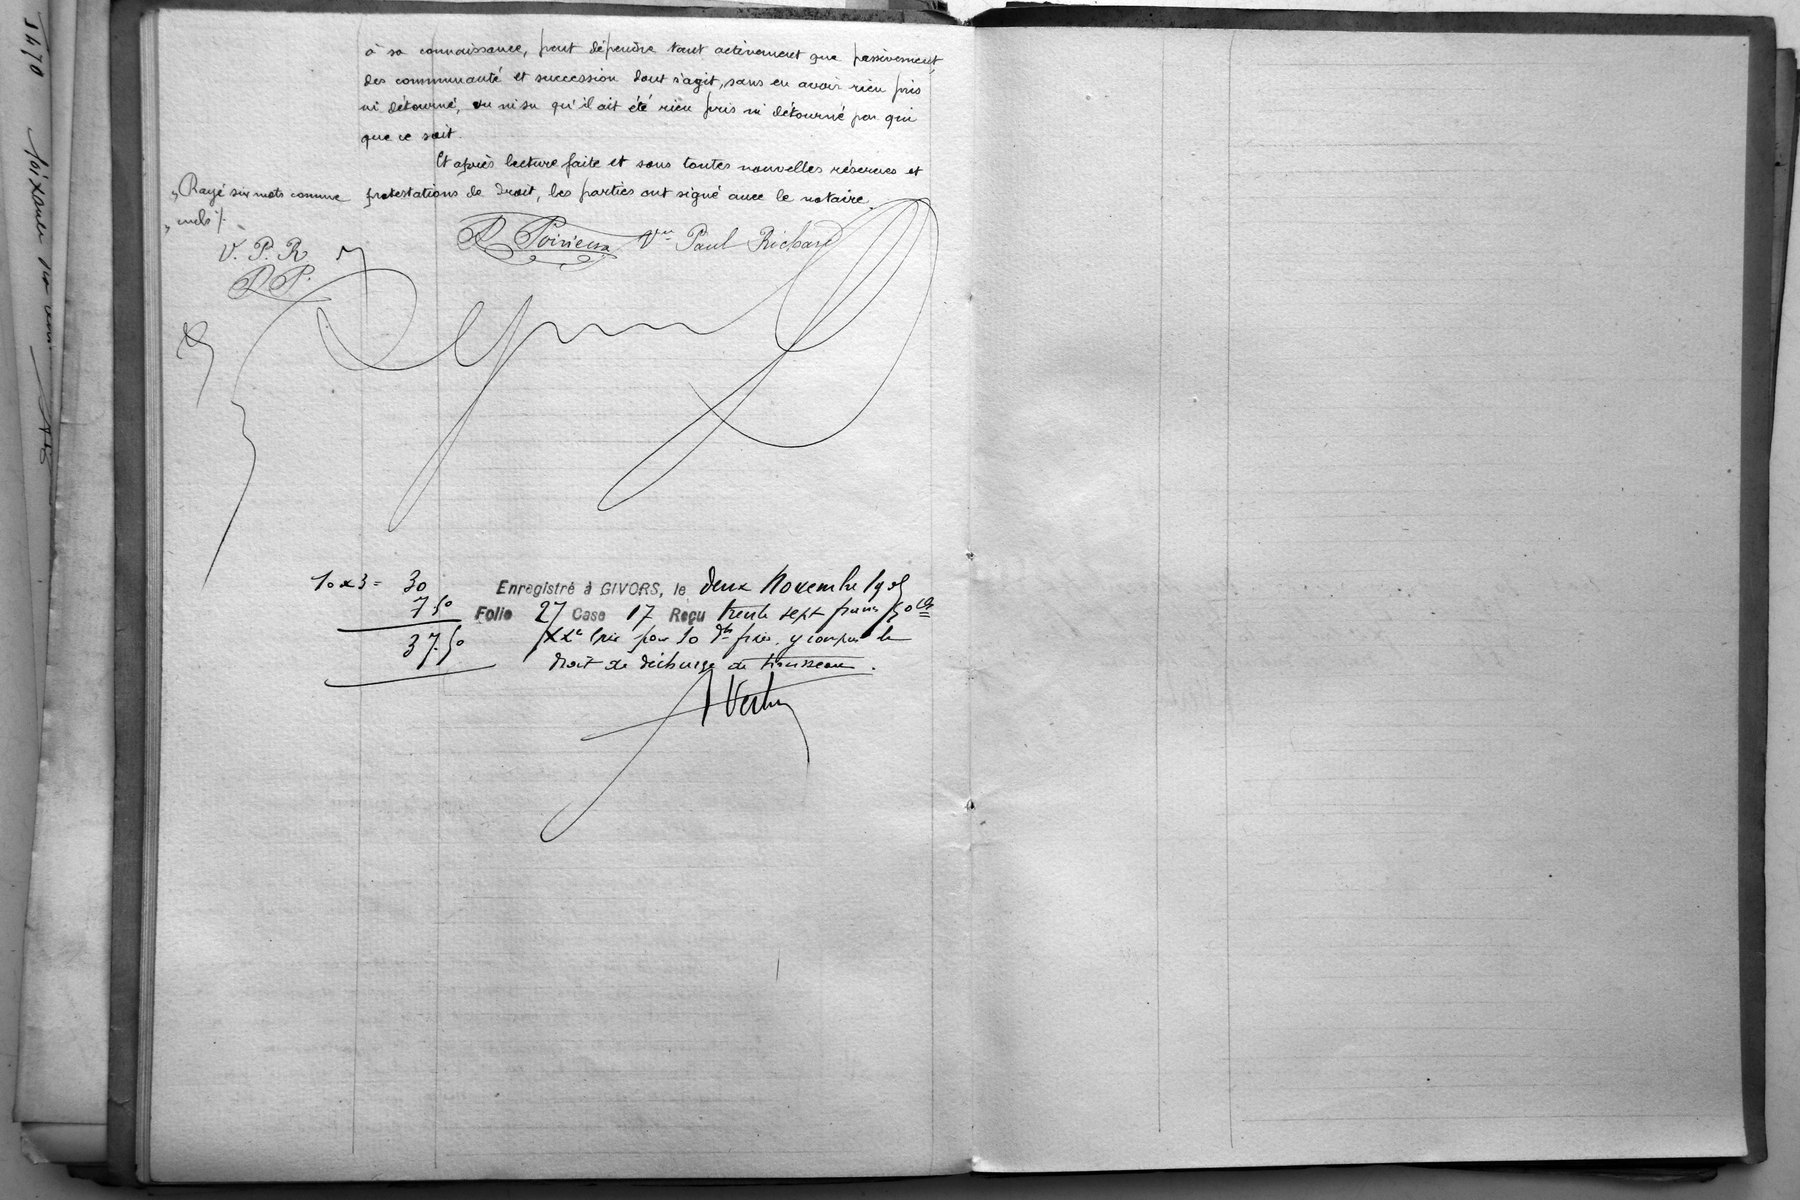 à sa connaissance, peut dépendre tant activement que passivement,
des communauté et succession dont s'agit, sans en avoir rien pris
ni détourné, vu ni su qu'il ait été rien pris ni détourné par qui
que ce soit.
Et après lecture faite et sous toutes nouvelles réserves et
protestations de droit, les parties ont signé avec le notaire.
"Rayé six mots comme
" nuls ./.
V. P. R
P P.
P Poirieux Vve Paul Richard
10 x 3 = 30
7 50
37.50
Enregistré à GIVORS, le deux Novembre
Folio 27 Case 17 Reçu trente sept francs 50 c
pour 10 dts fixes, y compris le
droit de décharge de trousseau.